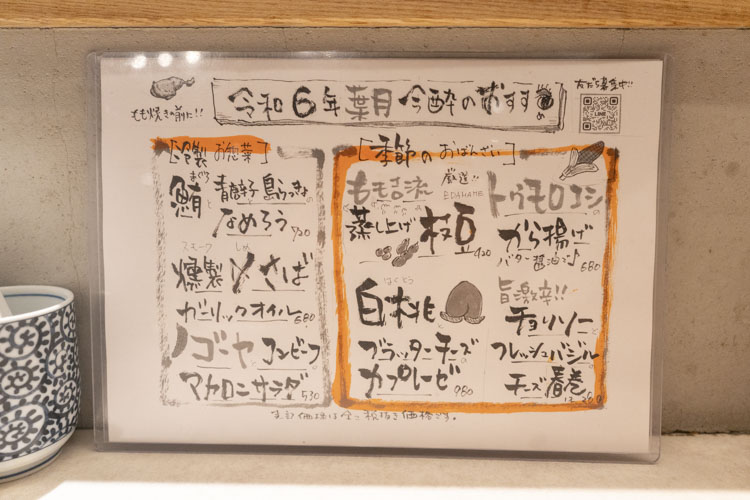 令和6年葉月 今酔のおすすめ
もも焼きの前に!!
友だち募集中!!
LINE
[冷製 お惣菜]
まぐろ
鮪と青唐辛子島らっきょの
なめろう 720
スモーク しめ
燻製〆さば
ガーリックオイル 680
ゴーヤコンビーフ
マカロニサラダ 530
[季節のおばんざい]
もも吉流 厳選!!
EDAMAME
蒸し上げ枝豆 420
はくとう
白桃と
ブラッターチーズの
カプレーゼ 980
トウモロコシの
から揚げ
バター醤油で♪ 680
旨激辛!!
チョリソーと
フレッシュバジルの
チーズ春巻
表記価格は全て税抜き価格です。